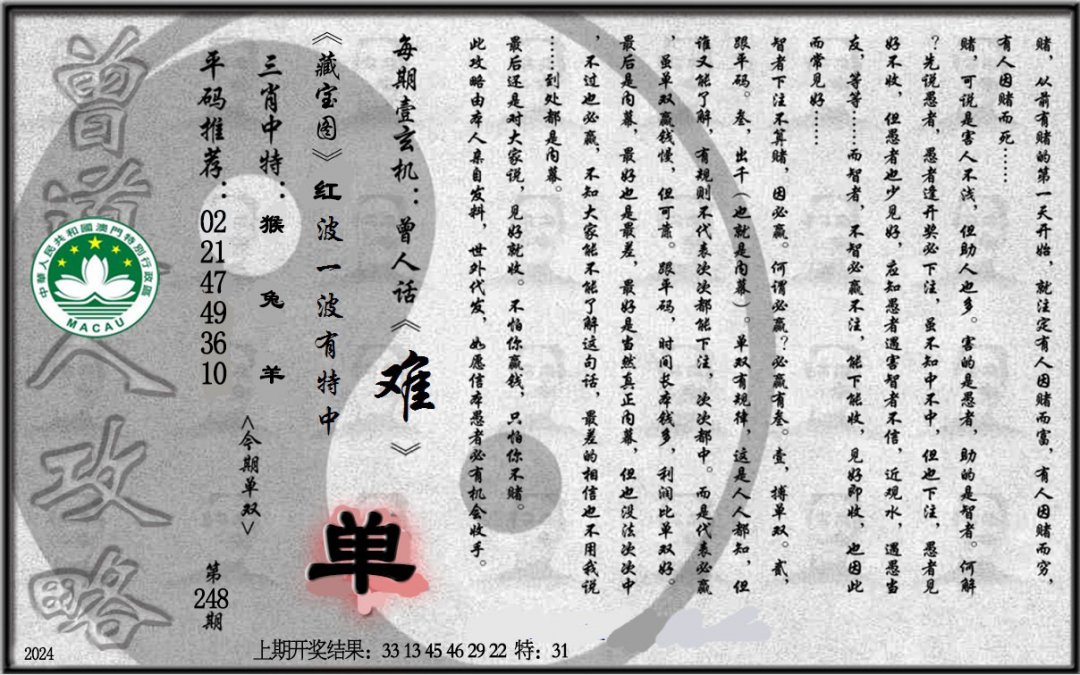 赌，从前有赌的第一天开始，就注定有人因赌而富，有人因赌而穷，
有人因赌而死……
赌，可说是害人不浅，但助人也多。害的是愚者，助的是智者。何解
？先说愚者，愚者逢开奖必下注，虽不知中不中，但也下注，愚者见
好不收，但愚者也少见好，应知愚者遇害智者不信，近观水，遇愚当
友，等等……而智者，不智必赢不注，能下能收，见好即收，也因此
而常见好……
智者下注不算赌，因必赢。何谓必赢？必赢有叁。壹，搏单双。贰，
跟平码。叁，出千（也就是内幕）。单双有规律，这是人人都知，但
谁又能了解，有规则不代表次次都能下注，次次都中。而是代表必赢
，虽单双赢钱慢，但可靠。跟平码，时间长本钱多，利润比单双好。
最后是内幕，最好也是最差，最好是当然真正内幕，但也没法次次中
，不过也必赢，不知大家能不能了解这句话，最差的相信也不用我说
……到处都是内幕。
最后还是对大家说，见好就收。不怕你赢钱，只怕你不赌。
此攻略由本人亲自发料，世外代发，如愿信本愚者必有机会收手。
每期壹玄机：曾人话《难》
《藏宝图》红波一波有特中
单
三肖中特：猴 兔 羊
<今期单双>
平码推荐：02 21 47 49 36 10
第248期
曾道人攻略
中華人民共和國澳門特別行政區
MACAU
2024
上期开奖结果：33 13 45 46 29 22 特：31